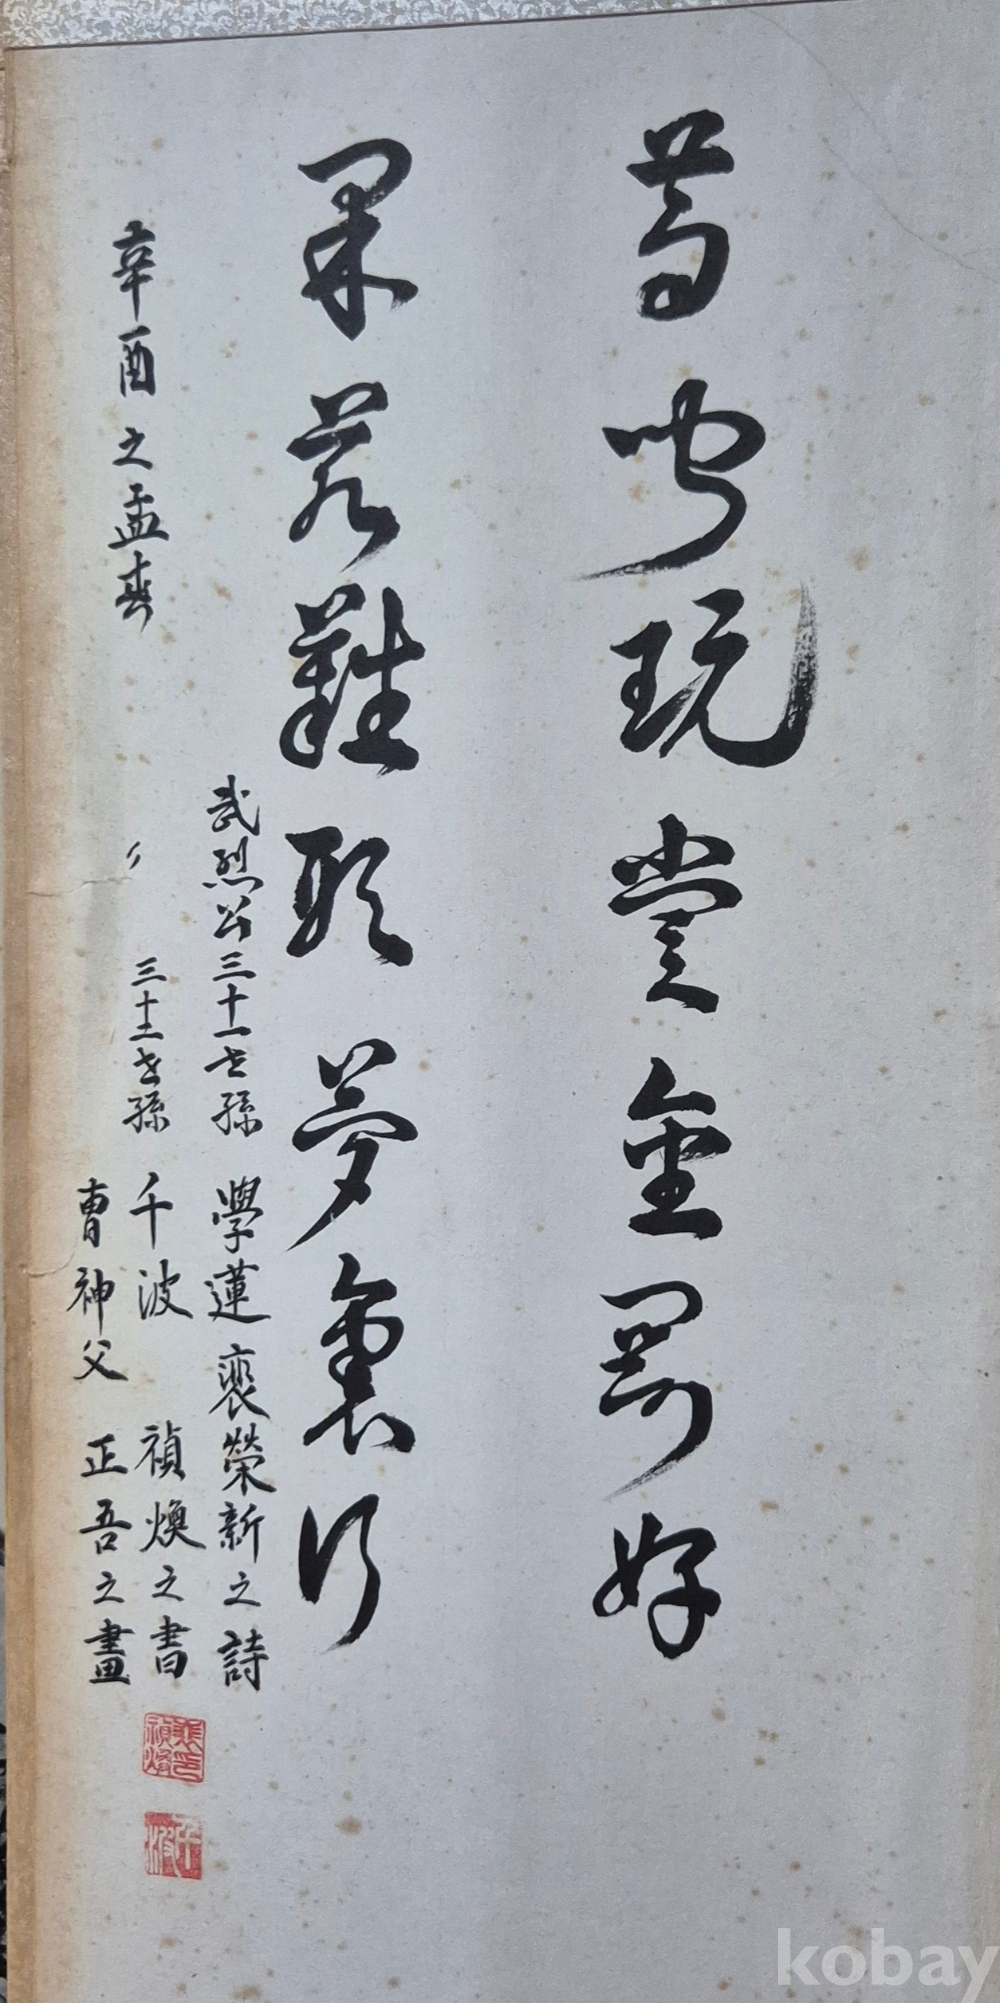 聞玩賞金剛好
果若難夢裏行
辛酉之孟春
武烈公三十一世孫 學蓮 裵榮新之詩
〃 三十二世孫 千波 禎煥之書
曹神父 正吾之畫
裵印禎煥
千波
kobay